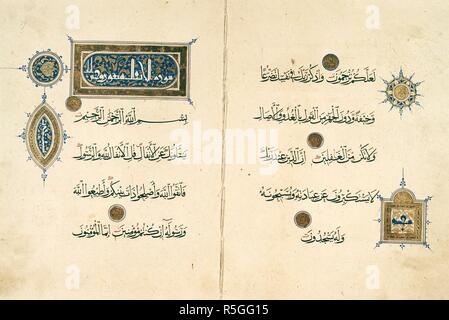 لعلكم ترحمون واذكر ربك في نفسك تضرعا
وخيفة ودون الجهر من القول بالغدو والآصال
ولا تكن من الغفلين إن الذين عند ربك
لا يستكبرون عن عبادته ويسبحونه
وله يسجدون
سورة الأنفال
بسم الله الرحمن الرحيم
يسئلونك عن الأنفال قل الأنفال لله والرسول
فاتقوا الله وأصلحوا ذات بينكم وأطيعوا الله
ورسوله إن كنتم مؤمنين إنما المؤمنون
R5GG15